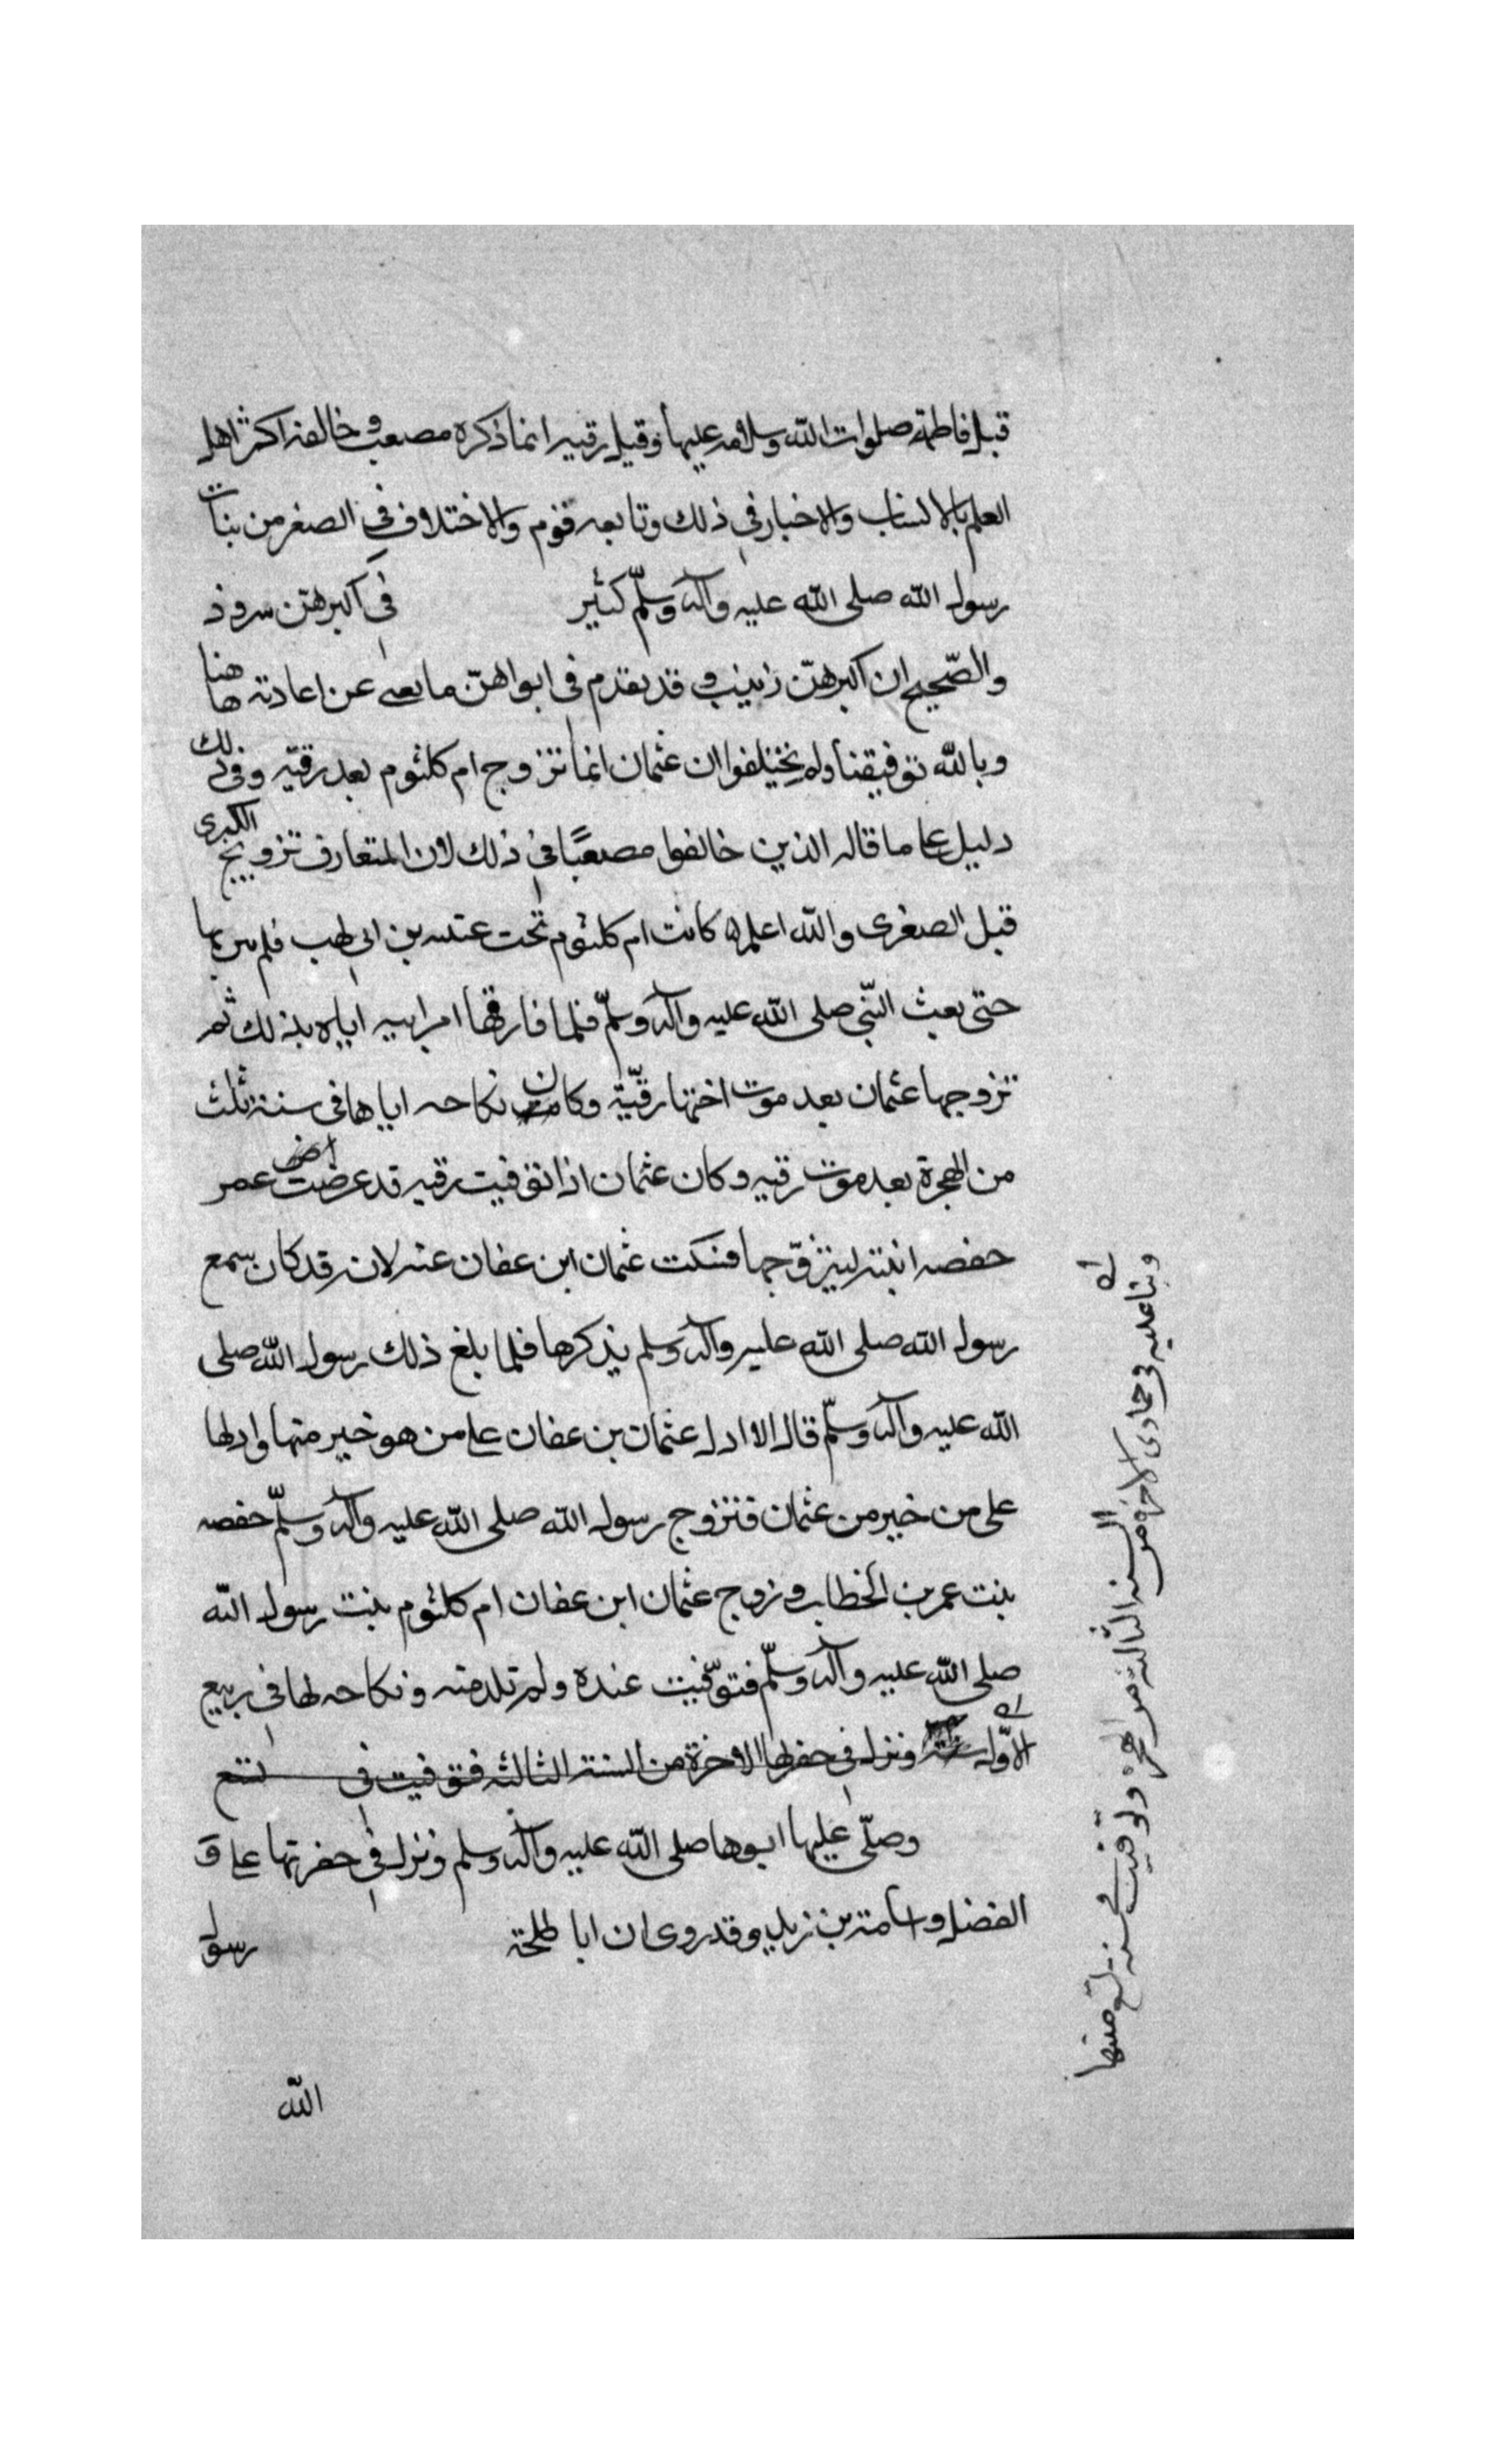 قبل فاطمة صلوات الله وسلامه عليها وقيل رقيه انما ذكره مصعب وخالفه اكثر اهل
العلم بالانساب والاخبار في ذلك وتابعه قوم والاختلاف في الصغر من بنات
رسول الله صلى الله عليه وآله وسلّم كثير في اكبرهن سرود
والصّحيح ان اكبرهنّ زينب وقد تقدم في ابوابهنّ ما يغني عن اعادته هاهنا
وبالله توفيقنا ولم يختلفوا ان عثمان انما تزوج ام كلثوم بعد رقيّه وفي ذلك
دليل على ما قاله الذين خالفوا مصعبًا في ذلك لان المتعارف تزويج الكبرى
قبل الصغرى والله اعلم كانت ام كلثوم تحت عتبه بن ابي لهب فلم يبن بها
حتى بعث النّبي صلى الله عليه وآله وسلّم فلما فارقها امر ابيه اياه بذلك ثم
تزوجها عثمان بعد موت اختها رقيّة وكان نكاحه اياها في سنة ثلث
من الهجرة بعد موت رقيه وكان عثمان اذا توفيت رقيه قد عرض عمر
حفصه ابنته ليتزوّجها فسكت عثمان ابن عفان عنه لانه قد كان سمع
رسول الله صلى الله عليه وآله وسلم يذكرها فلما بلغ ذلك رسول الله صلى
الله عليه وآله وسلّم قال الا ادل عثمان بن عفان على من هو خير منها وادلها
على من خير من عثمان فتزوج رسول الله صلى الله عليه وآله وسلّم حفصه
بنت عمر بن الخطاب وزوج عثمان ابن عفان ام كلثوم بنت رسول الله
صلى الله عليه وآله وسلّم فتوّفيت عنده ولم تلد منه ونكاحه لها في ربيع
الاوّل ونزل في حفرتها الاخرة من السنة الثالثه فتوفيت في تسع
وصلّى عليها ابوها صلى الله عليه وآله وسلم ونزل في حفرتها على و
الفضل واسامة بن زيد وقد روى ان ابا طلحة رسول
الله
وبنا عليه في جمادى الاخرة من السنه الثالثه من الهجرة وتوفيت في سنة تسع منها